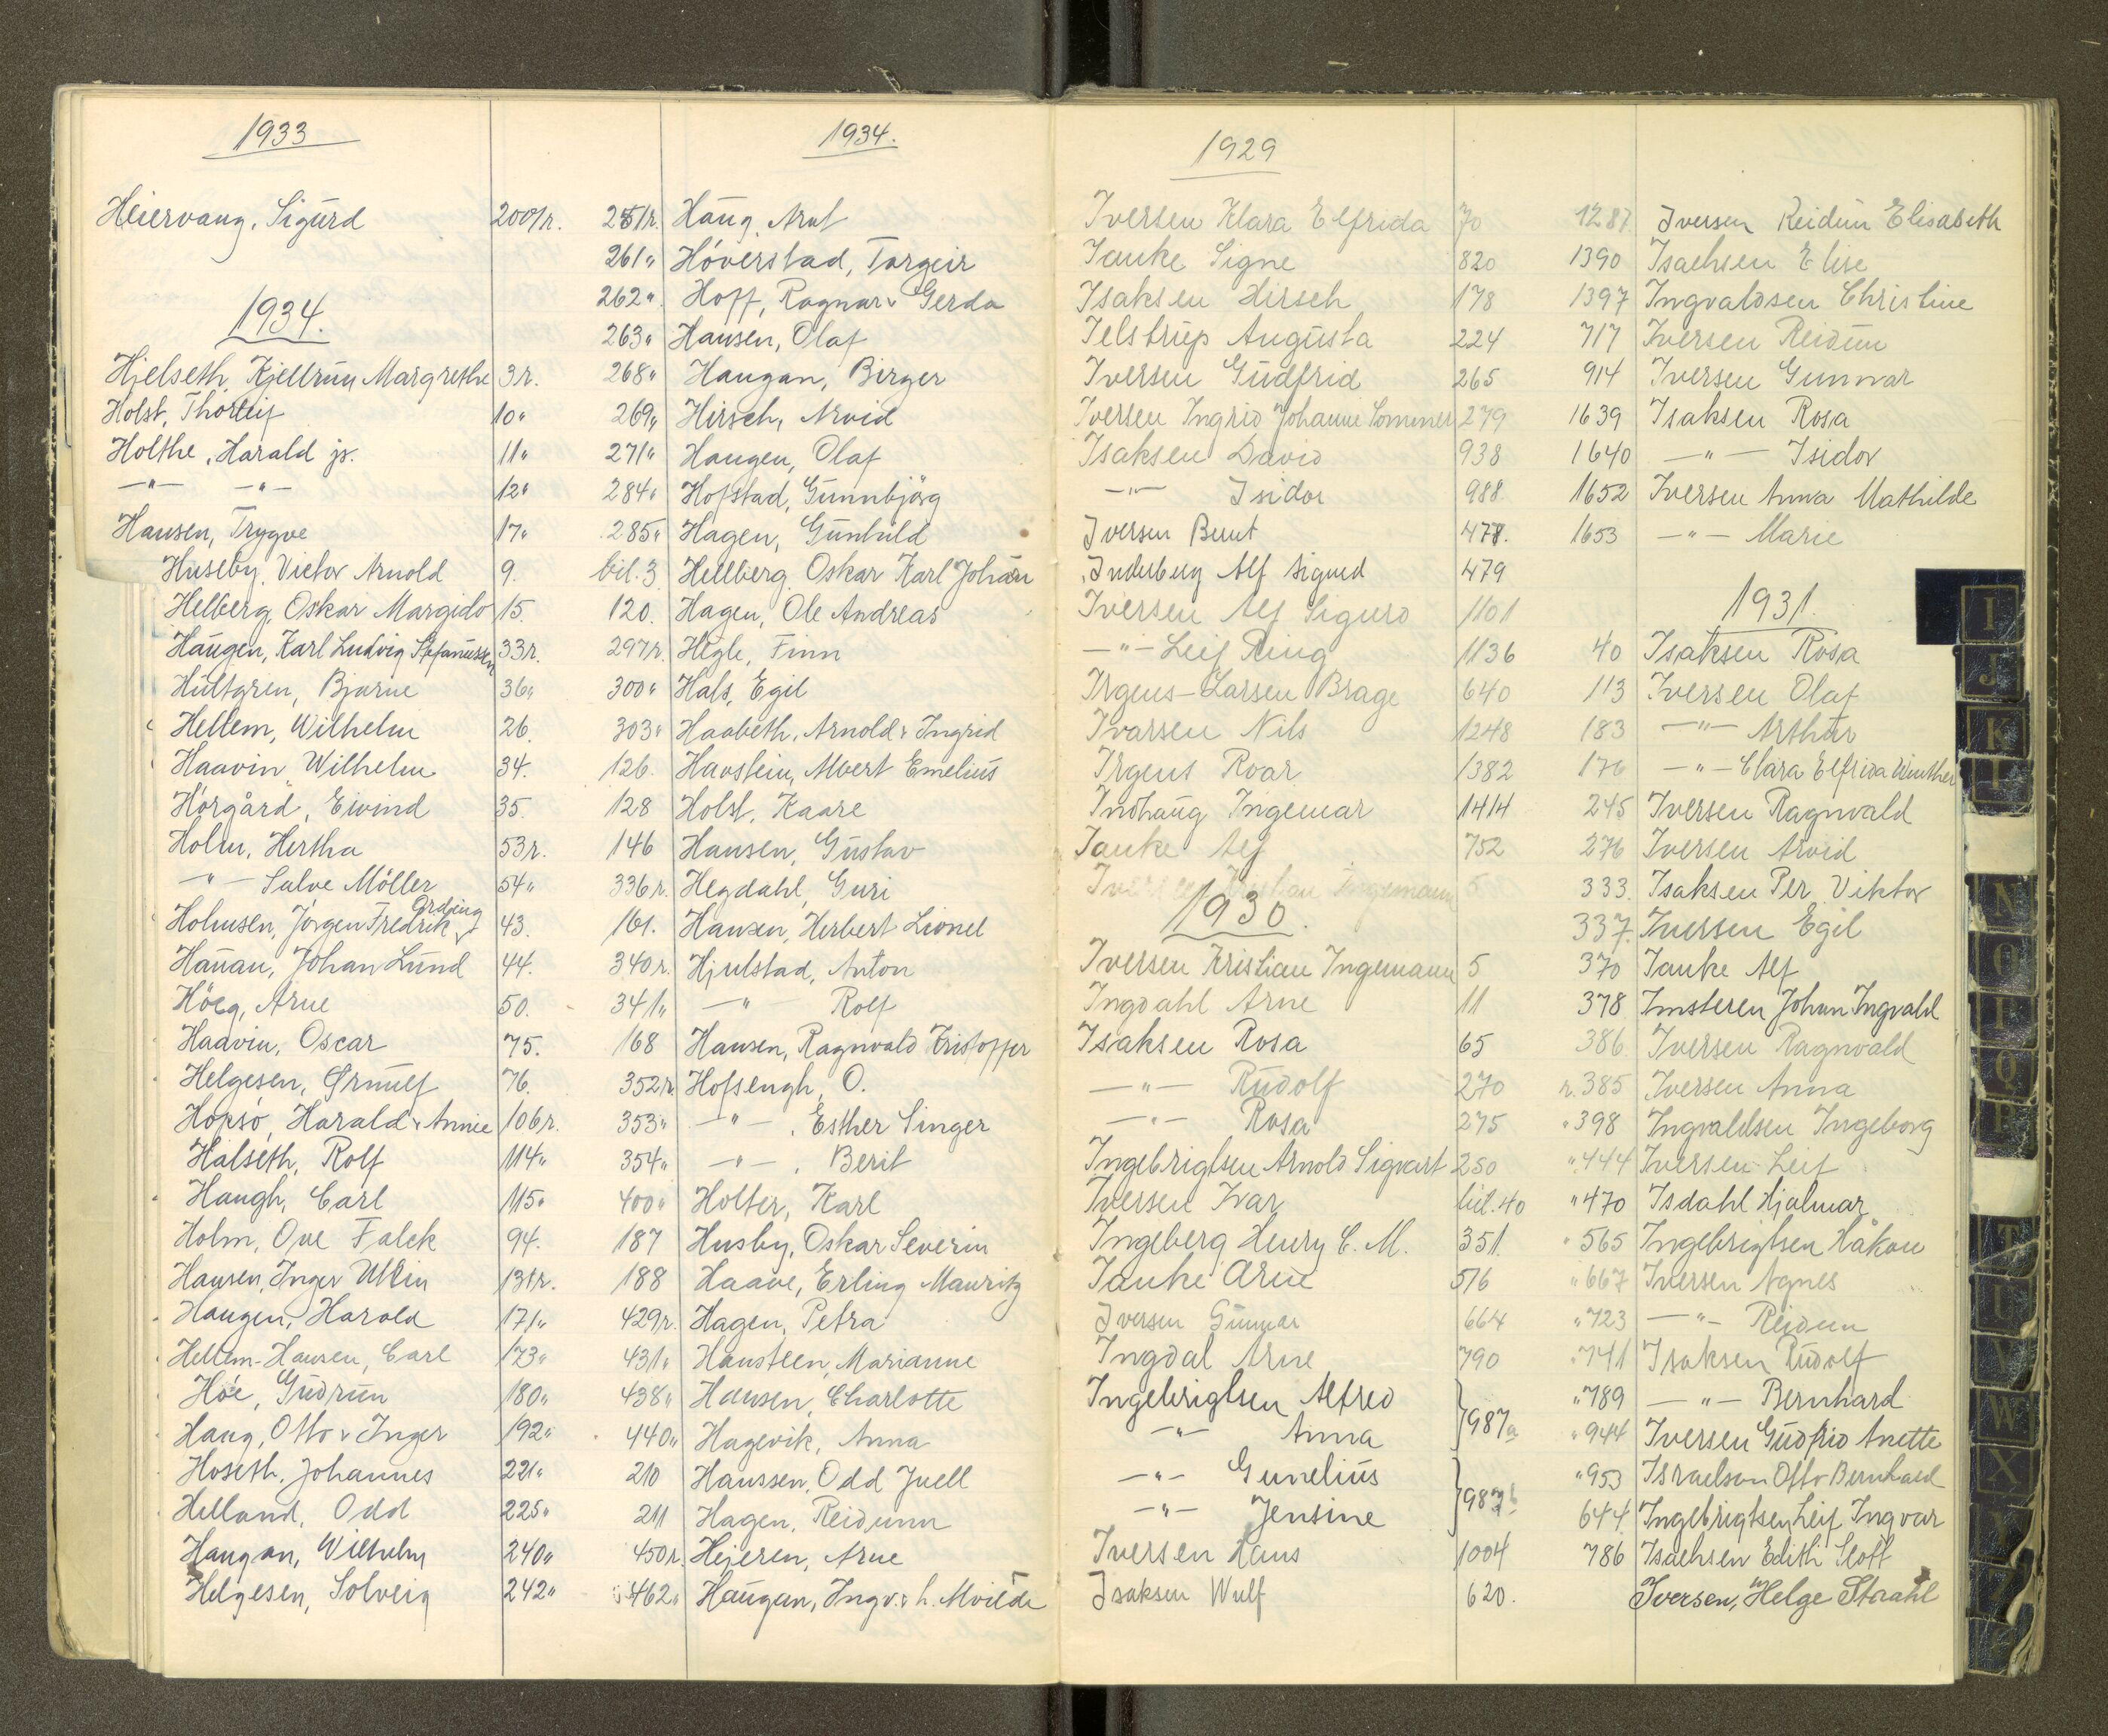 1933
Heiervang, Sigurd 200/r.
1934.
Hjelseth, Kjellrun Margrethe 3r.
Holst, Thorleif 10"
Holthe, Harald jr. 11"
—"— —"— 12"
Hansen, Trygve 17"
Huseby, Victor Arnold 9.
Helberg, Oskar Margido 15.
Haugen, Karl Ludvig Stefanussen 33r.
Hultgren, Bjarne 36"
Hellem, Wilhelm 26.
Haavin, Wilhelm 34.
Hørgård, Eivind 35.
Holm, Hertha 53r.
—"— Salve Möller 54"
Holmsen, Jörgen Fredrik Ording 43.
Hanan, Johan Lund 44.
Höeg, Arne 50.
Haavin, Oscar 75.
Helgesen, Ørnulf 76.
Hopsö, Harald & Annie 106r.
Halseth, Rolf 114"
Haugh, Carl 115"
Holm, Ove Falck 94.
Hansen, Inger 131r.
Haugen, Harald 171"
Hellem-Hansen, Carl 173"
Höe, Gudrun 180"
Haug, Otto & Inger 192"
Hoseth, Johannes 221"
Helland, Odd 225"
Haugan, Wilhelm 240"
Helgesen, Solveig 242"
1934.
251r. Haug, Arnt
261" Höverstad, Torgeir
262" Hoff, Ragnar & Gerda
263" Hansen, Olaf
268" Haugan, Birger
269" Hirsch, Arvid
271" Haugen, Olaf
284" Hofstad, Gunnbjörg
285" Hagen, Gunhild
bil.3 Hellberg Oskar Karl Johan
120. Hagen, Ole Andreas
297r. Hegle, Finn
300" Hals, Egil
303" Haabeth, Arnold & Ingrid
126. Havstein, Albert Emelius
128 Holst, Kaare
146 Hansen, Gustav
336r. Hegdahl, Guri
161. Hansen, Herbert Lionel
340r. Hjulstad, Anton
341" —"— Rolf
168 Hansen, Ragnvald Kristoffer
352r. Hofsengh, O.
353" —"—, Esther Singer
354" —"—, Berit
400" Holter, Karl
187 Husby, Oskar Severin
188 Haave, Erling Mauritz
429r. Hagen, Petra
431" Hansteen, Marianne
438" Hansen, Charlotte
440" Hagevik, Anna
210 Hanssen, Odd Juell
211 Hagen, Reidunn
450r. Hejeren, Arne
462" Haugan, Ingv. & h. Mvilde
1929
Iversen Klara Elfrida 70
Ianke Signe 820
Isaksen Hirsch 178
Ielstrup Augusta 224
Iversen Gudfrid 265
Iversen Ingrid Johanne Sommer 279
Isaksen David 938
—"— Isidor 988
Iversen Bernt 478.
Inderberg Alf Sigurd 479
Iversen Alf Sigurd 1101
—"— Leif Ring 1136
Irgens-Larsen Brage 640
Ivarsen Nils 1248
Irgens Roar 1382
Indhaug Ingemar 1414
Ianke Alf 752
Iversen Kristian Ingemann 5
1930.
Iversen Kristian Ingemann 5
Ingdahl Arne 11
Isaksen Rosa 65
—"— Rudolf 270
—"— Rosa 275
Ingebrigtsen Arnold Sigvart 250
Iversen Ivar bil.40
Ingeberg Henry C. M. 351.
Ianke Arne 516
Iversen Gunnar 664
Ingdal Arne 790
Ingebrigtsen Alfred
—"— Anna } 987a
—"— Gunelius
—"— Jensine } 987b
Iversen Hans 1004
Isaksen Wulf 620.
1287 Iversen Reidun Elisabeth
1390 Isachsen Elise
1397 Ingvaldsen Christine
717 Iversen Reidun
914 Iversen Gunnvar
1639 Isaksen Rosa
1640 —"— Isidor
1652 Iversen Anna Mathilde
1653 —"— Marie
1931.
40 Isaksen Rosa
113 Iversen Olaf
183 —"— Arthur
176 —"— Clara Elfrida Winther
245 Iversen Ragnvald
276 Iversen Arvid
333. Isaksen Per Viktor
337. Iversen Egil
370 Ianke Alf
378 Imsteren Johan Ingvald
386 Iversen Ragnvald
r.385 Iversen Anna
"398 Ingvaldsen Ingeborg
"444 Iversen Leif
"470 Isdahl Hjalmar
"565 Ingebrigtsen Håkon
"667 Iversen Agnes
"723 —"— Reidun
"741 Isaksen Rudolf
"789 —"— Bernhard
"944 Iversen Gudfrid Anette
"953 Israelson Otto Bernhard
644 Ingebrigtsen Leif Ingvar
786 Isachsen Edith Slott
Iversen, Helge Staahl
I
J
K
L
N
O
P
Q
P
T
U
V
W
X
Y
Z